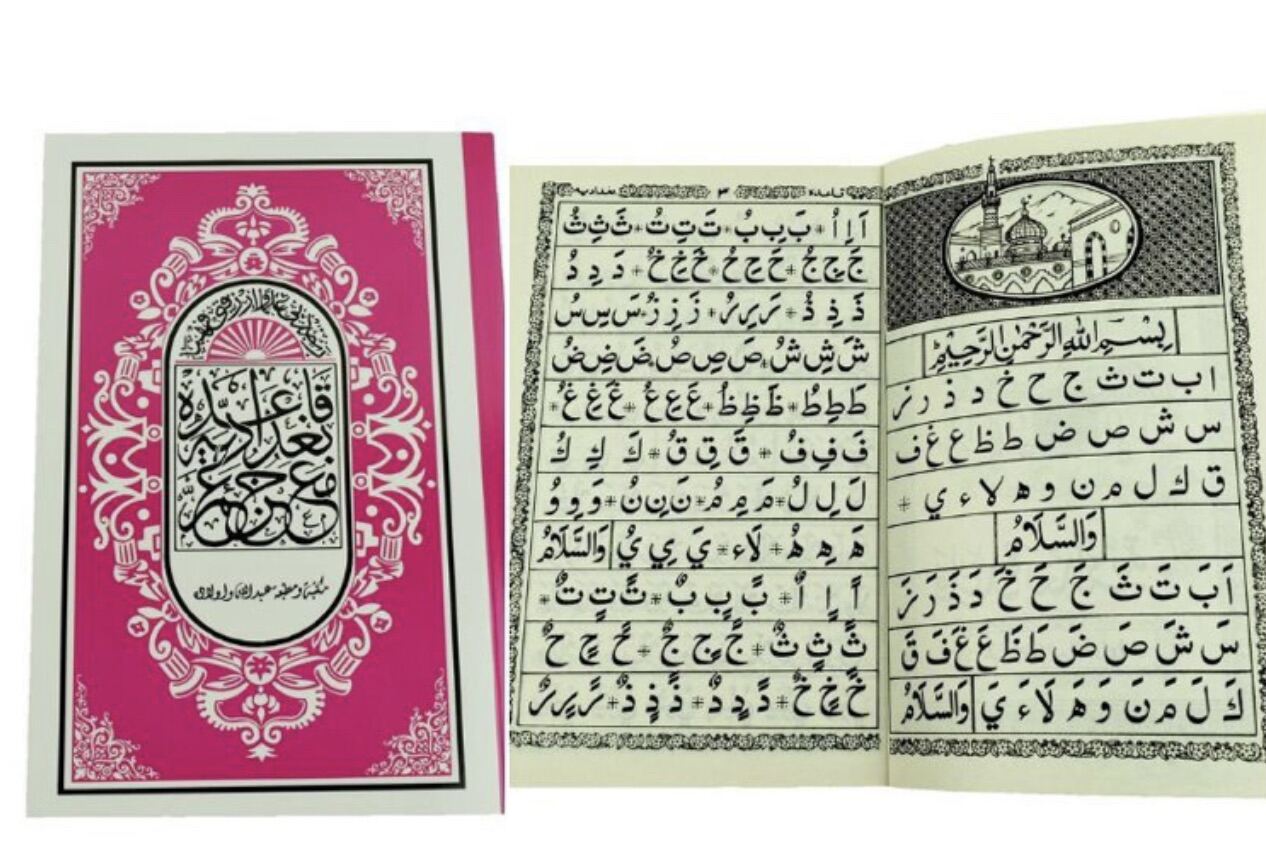 رب زدني علما وارزقني فهما
قاعده
بغدادية
مع
جزء عمّ
مكتبة ومطبعة
بِسْمِ اللهِ الرَّحْمٰنِ الرَّحِيْمِ
ا ب ت ث ج ح خ د ذ ر ز
س ش ص ض ط ظ ع غ ف
ق ك ل م ن و ه لا ء ي *
وَالسَّلَامُ
اَ بَ تَ ثَ جَ حَ خَ دَ ذَ رَ زَ
سَ شَ صَ ضَ طَ ظَ عَ غَ فَ قَ
كَ لَ مَ نَ وَ هَ لَا ءَ يَ وَالسَّلَامُ
قاعدة ٣ بغدادية
اَ اِ اُ * بَ بِ بُ * تَ تِ تُ * ثَ ثِ ثُ
جَ جِ جُ * حَ حِ حُ * خَ خِ خُ * دَ دِ دُ
ذَ ذِ ذُ * رَ رِ رُ * زَ زِ زُ * سَ سِ سُ
شَ شِ شُ * صَ صِ صُ * ضَ ضِ ضُ
طَ طِ طُ * ظَ ظِ ظُ * عَ عِ عُ * غَ غِ غُ *
فَ فِ فُ * قَ قِ قُ * كَ كِ كُ
لَ لِ لُ * مَ مِ مُ * نَ نِ نُ * وَ وِ وُ
هَ هِ هُ * لَاء * يَ يِ يُ وَالسَّلَامُ
اً اٍ اٌ * بً بٍ بٌ * تً تٍ تٌ *
ثً ثٍ ثٌ * جً جٍ جٌ * حً حٍ حٌ
خً خٍ خٌ * دً دٍ دٌ * ذً ذٍ ذٌ * رً رٍ رٌ